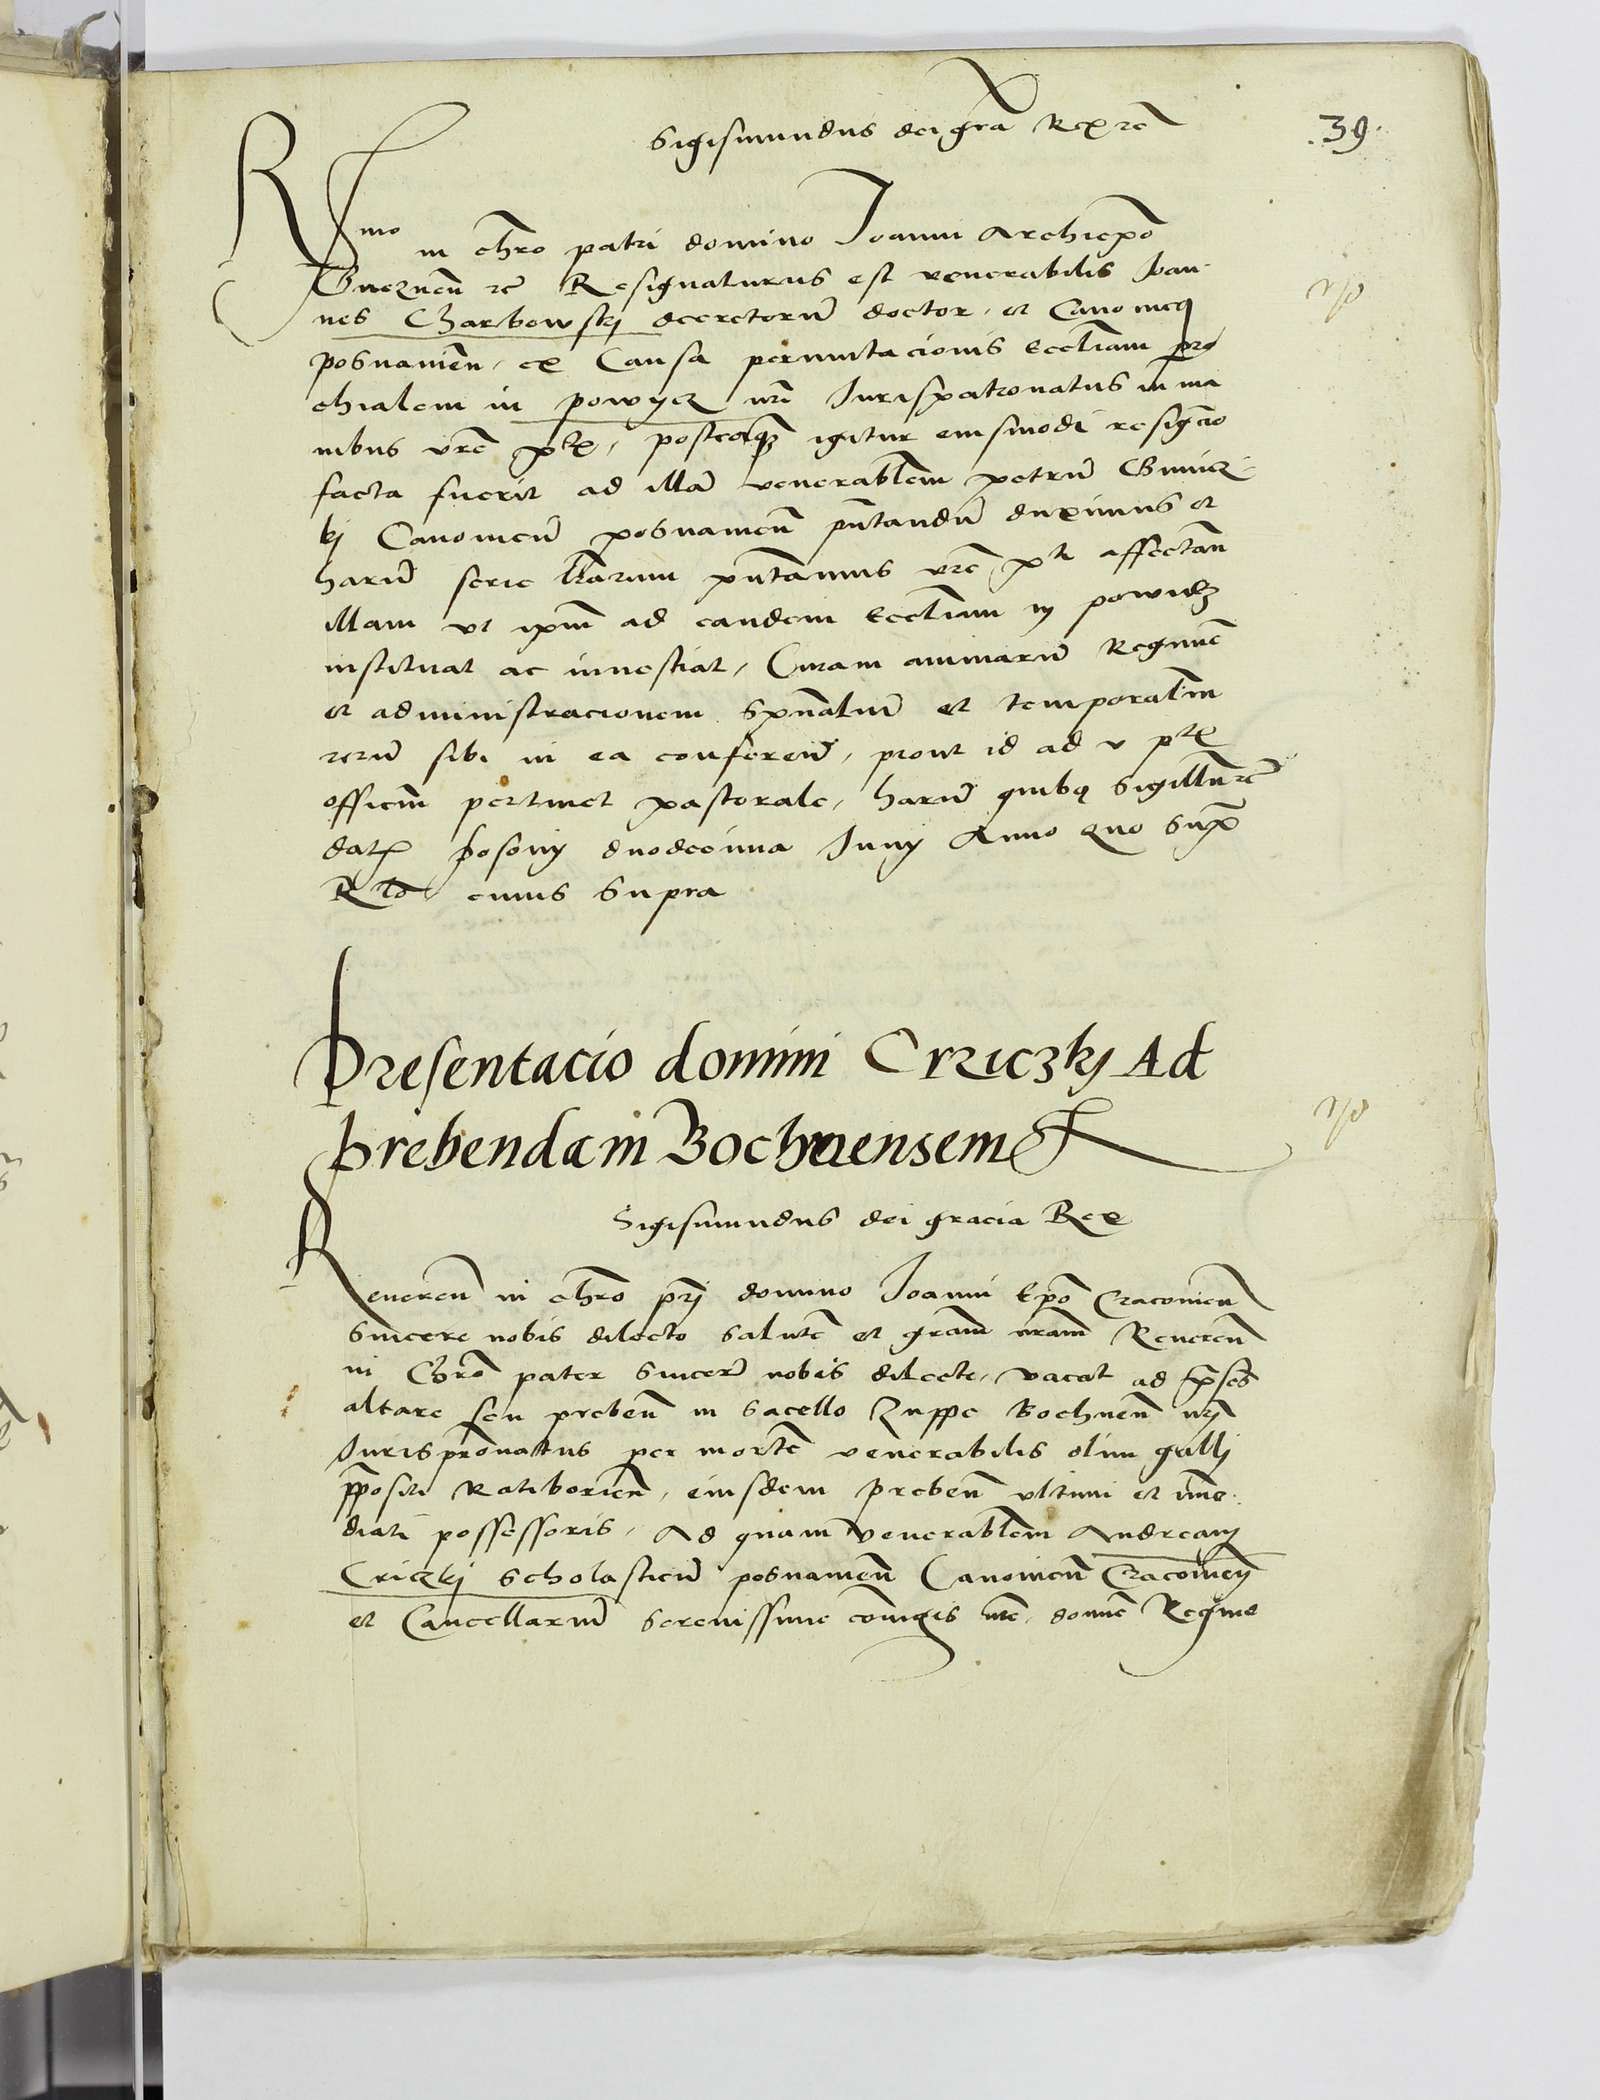 Sigismundus dei gra Rex rc
39.
R mo in chro patri domino Joanni Archiepo
Gneznen rc Resignaturus est venerabilis Joan
nes Charbowskj decretorum doctor, et Canonicq
posnanien, ex Causa permutacionis Eccliam pro
chialem in powycz nri Jurispatronatus in ma
nibus vre ptx, posteaqz igitur eiusmodi resigcio
facta fuerit ad illa venerablem petru Gnuicz
kj Canonicu posnanien pntandu duximus et
haru serie lrarum pntamus vre pti affectan
illam vt ipm ad eandem Eccliam in powidz
instituat ac inuestiat, Curam animaru Regime
et administracionem spualium et temporalim
reru sibi in ea conferen, prout id ad v ptx
officim pertinet pastorale, haru quibq sigillum rc
datx posonij duodecima Junij Anno quo supx
Rlo cuius supra
Presentacio domini Crziczkj Ad
prebendam Bochnensem
Sigismundus dei gracia Rex
Reueren in chro prj domino Joanni Epo Cracouien
Sincere nobis dilecto salute et gram nram Reueren
in Chro pater sincere nobis dilecte, vacat ad pses
altare seu preben in sacello Zuppe Bochnen nrj
Jurispronattus per morte venerabilis olim galli
ppositi Ratiborien, eiusdem preben vltimi et ime
diati possessoris, Ad quam venerablem Andream
Criczkj scholasticu posnanien Canonicum Cracouien
et Cancellariu serenissime coniugis nre, domine Regine